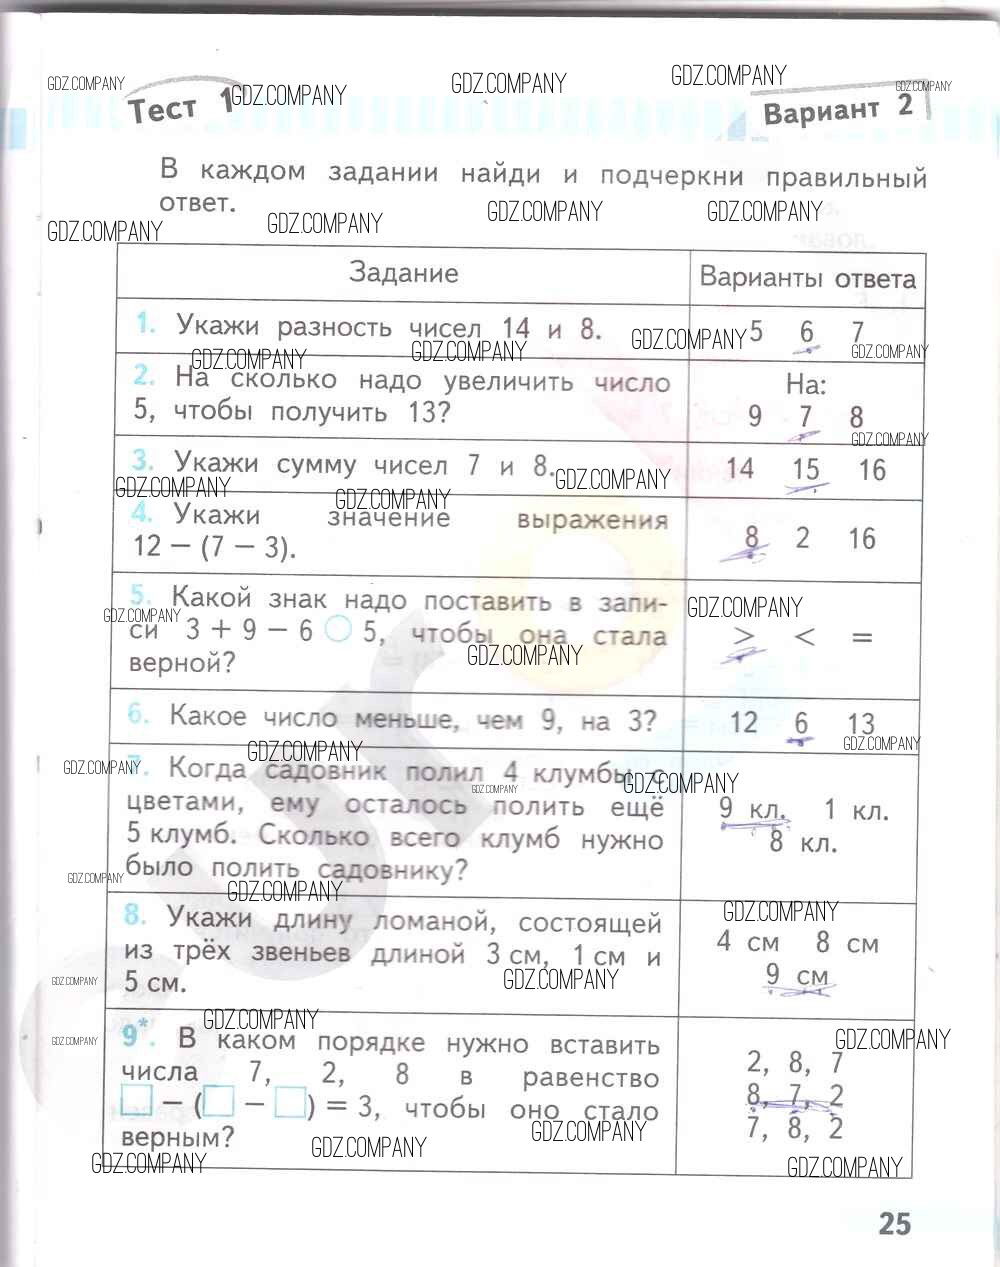 GDZ.COMPANY GDZ.COMPANY GDZ.COMPANY GDZ.COMPANY GDZ.COMPANY
Тест 1 Вариант 2
В каждом задании найди и подчеркни правильный
ответ.
GDZ.COMPANY GDZ.COMPANY GDZ.COMPANY GDZ.COMPANY
Задание Варианты ответа
1. Укажи разность чисел 14 и 8. GDZ.COMPANY 5 6 7
GDZ.COMPANY GDZ.COMPANY GDZ.COMPANY
2. На сколько надо увеличить число На:
5, чтобы получить 13? 9 7 8
GDZ.COMPANY
3. Укажи сумму чисел 7 и 8. 14 15 16
GDZ.COMPANY GDZ.COMPANY GDZ.COMPANY
4. Укажи значение выражения
12 − (7 − 3). 8 2 16
5. Какой знак надо поставить в запи-
GDZ.COMPANY GDZ.COMPANY
си 3 + 9 − 6 ○ 5, чтобы она стала > < =
верной? GDZ.COMPANY
6. Какое число меньше, чем 9, на 3? 12 6 13
GDZ.COMPANY GDZ.COMPANY
7. Когда садовник полил 4 клумбы с
GDZ.COMPANY GDZ.COMPANY GDZ.COMPANY
цветами, ему осталось полить ещё 9 кл. 1 кл.
5 клумб. Сколько всего клумб нужно 8 кл.
было полить садовнику?
GDZ.COMPANY GDZ.COMPANY GDZ.COMPANY
8. Укажи длину ломаной, состоящей 4 см 8 см
из трёх звеньев длиной 3 см, 1 см и 9 см
5 см.
GDZ.COMPANY GDZ.COMPANY
GDZ.COMPANY GDZ.COMPANY GDZ.COMPANY
9*. В каком порядке нужно вставить 2, 8, 7
числа 7, 2, 8 в равенство 8, 7, 2
□ − (□ − □) = 3, чтобы оно стало 7, 8, 2
верным? GDZ.COMPANY
GDZ.COMPANY GDZ.COMPANY GDZ.COMPANY
25